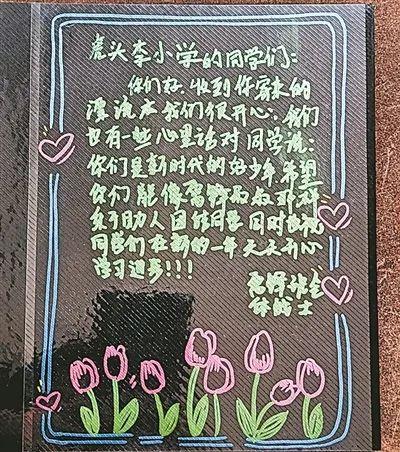 虎头李小学的同学们:
你们好,收到你寄来的
漂流我们很开心,我们
也有一些心里话对同学说:
你们是新时代的好少年希望
你们能像雷锋叔叔那样
乐于助人团结同学同时也祝
同学们在新的一年天天开心
学习进步!!!
雷锋班全
体战士